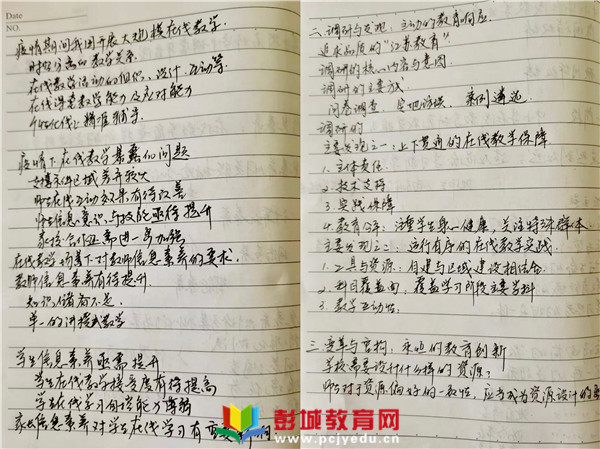 Date
NO.
疫情期间我国开展大规模在线教学
时空分离的教学关系
在线教学活动的组织、设计、互动等
在线课堂教学能力及应对能力
个性化线上精准辅导
疫情下在线教学暴露的问题
支撑条件区域差异较大
师生在线互动效果有待改善
师生信息意识与技能亟待提升
家校合作还需进一步加强
在线教学场景下对教师信息素养的要求
教师信息素养有待提升
知识储备不足
单一的讲授式教学
学生信息素养亟需提升
学生在线教学接受度有待提高
学生在线学习自控能力薄弱
家长信息素养对学生在线学习有重要
二、调研与发现：主动的教育响应
追求品质的“江苏教育”
调研的核心内容与意图
调研的主要方式
问卷调查、实地访谈、案例遴选
调研的
主要发现之一：上下贯通的在线教学保障
1. 主体责任
2. 技术支持
3. 实践保障
4. 教育公平：注重学生身心健康，关注特殊群体
主要发现之二：运行有序的在线教学实践
1. 工具与资源：自建与区域建设相结合
2. 科目覆盖面：覆盖学习阶段主要学科
3. 教学互动性：
三、变革与重构：永远的教育创新
学校需要设计什么样的资源：
师生对于资源偏好的一致性，应当成为资源设计的
彭城教育网
www.pcjyedu.cn